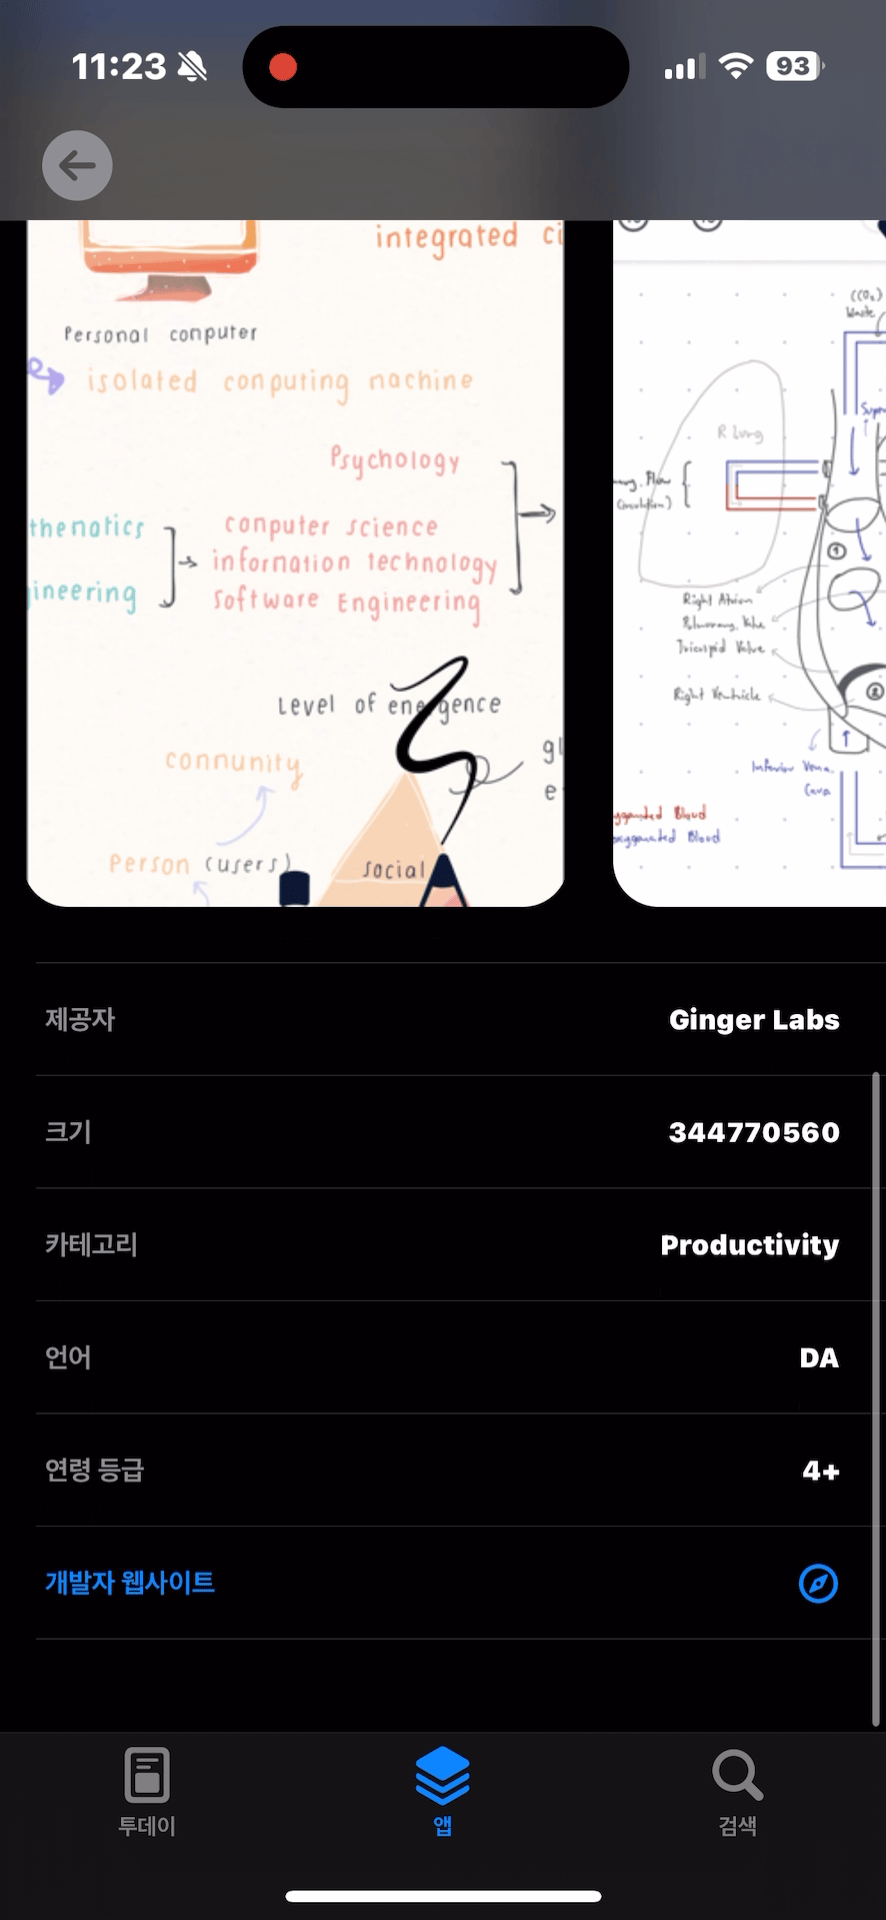 11:23
93
integrated ci
Personal computer
isolated computing nachine
Psychology
thenatics
conputer science
ineering
infornation technology
Software Engineering
Level of energence
connunity
gl
e
Person (users)
social
((O₂)
Waste
R Lung
Right Atrium
Pulmonary Valve
Tricuspid Valve
Right Ventricle
①
②
Inferior Vena
Cava
ygenated Blood
oxygenated Blood
제공자 Ginger Labs
크기 344770560
카테고리 Productivity
언어 DA
연령 등급 4+
개발자 웹사이트
투데이
앱
검색